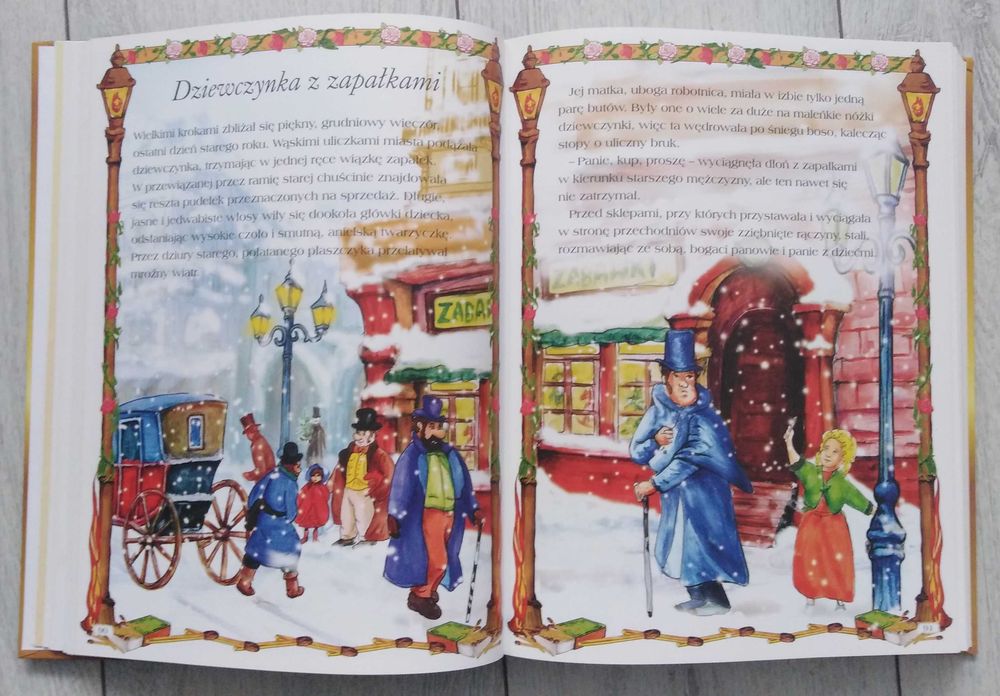 Dziewczynka z zapałkami
Wielkimi krokami zbliżał się piękny, grudniowy wieczór,
ostatni dzień starego roku. Wąskimi uliczkami miasta podążała
dziewczynka, trzymając w jednej ręce wiązkę zapałek.
W przewiązanej przez ramię starej chuścinie znajdowała
się reszta pudełek przeznaczonych na sprzedaż. Długie,
jasne i jedwabiste włosy wiły się dookoła główki dziecka,
odsłaniając wysokie czoło i smutną, anielską twarzyczkę.
Przez dziury starego, połatanego płaszczyka przelatywał
mroźny wiatr.
ZABA
90
Jej matka, uboga robotnica, miała w izbie tylko jedną
parę butów. Były one o wiele za duże na maleńkie nóżki
dziewczynki, więc ta wędrowała po śniegu boso, kalecząc
stopy o uliczny bruk.
– Panie, kup, proszę – wyciągnęła dłoń z zapałkami
w kierunku starszego mężczyzny, ale ten nawet się
nie zatrzymał.
Przed sklepami, przy których przystawała i wyciągała
w stronę przechodniów swoje zziębnięte rączyny, stali,
rozmawiając ze sobą, bogaci panowie i panie z dziećmi.
ZABAWKI
91